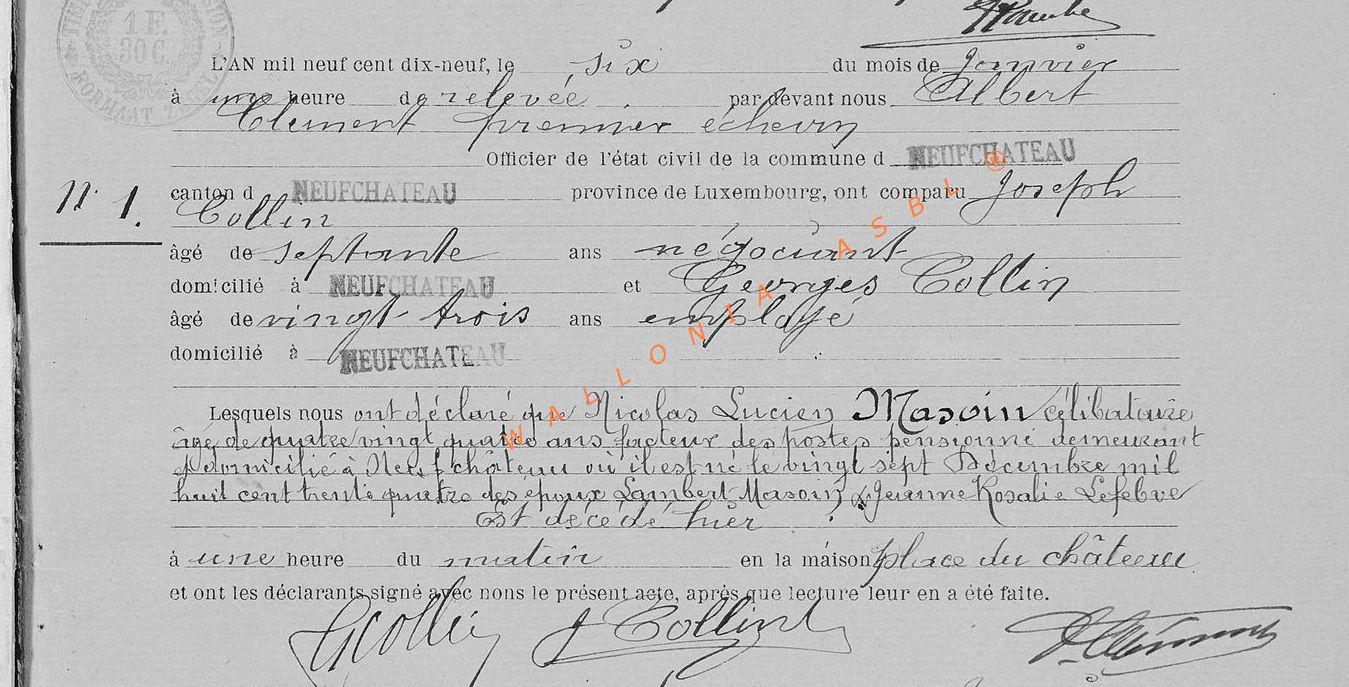 1 F.
30 C.
FORMAAT ZEGEL
L'AN mil neuf cent dix-neuf, le six du mois de Janvier
à une heure de relevée par devant nous Albert
Clement premier échevin
Officier de l'état civil de la commune d NEUFCHATEAU
N° 1. canton d NEUFCHATEAU province de Luxembourg, ont comparu Joseph
Collin
âgé de septante ans négociant
domicilié à NEUFCHATEAU et Georges Collin
âgé de vingt-trois ans employé
domicilié à NEUFCHATEAU
Lesquels nous ont déclaré que Nicolas Lucien Masoin célibataire
âgé de quatre vingt quatre ans facteur des postes pensionné demeurant
& domicilié à Neufchâteau où il est né le vingt sept Décembre mil
huit cent trente quatre des époux Lambert Masoin & Jeanne Rosalie Lefebve
Est décédé hier
à une heure du matin en la maison place du château
et ont les déclarants signé avec nous le présent acte, après que lecture leur en a été faite.
GCollin J Collin AClément
WALLONIA ASBL ©